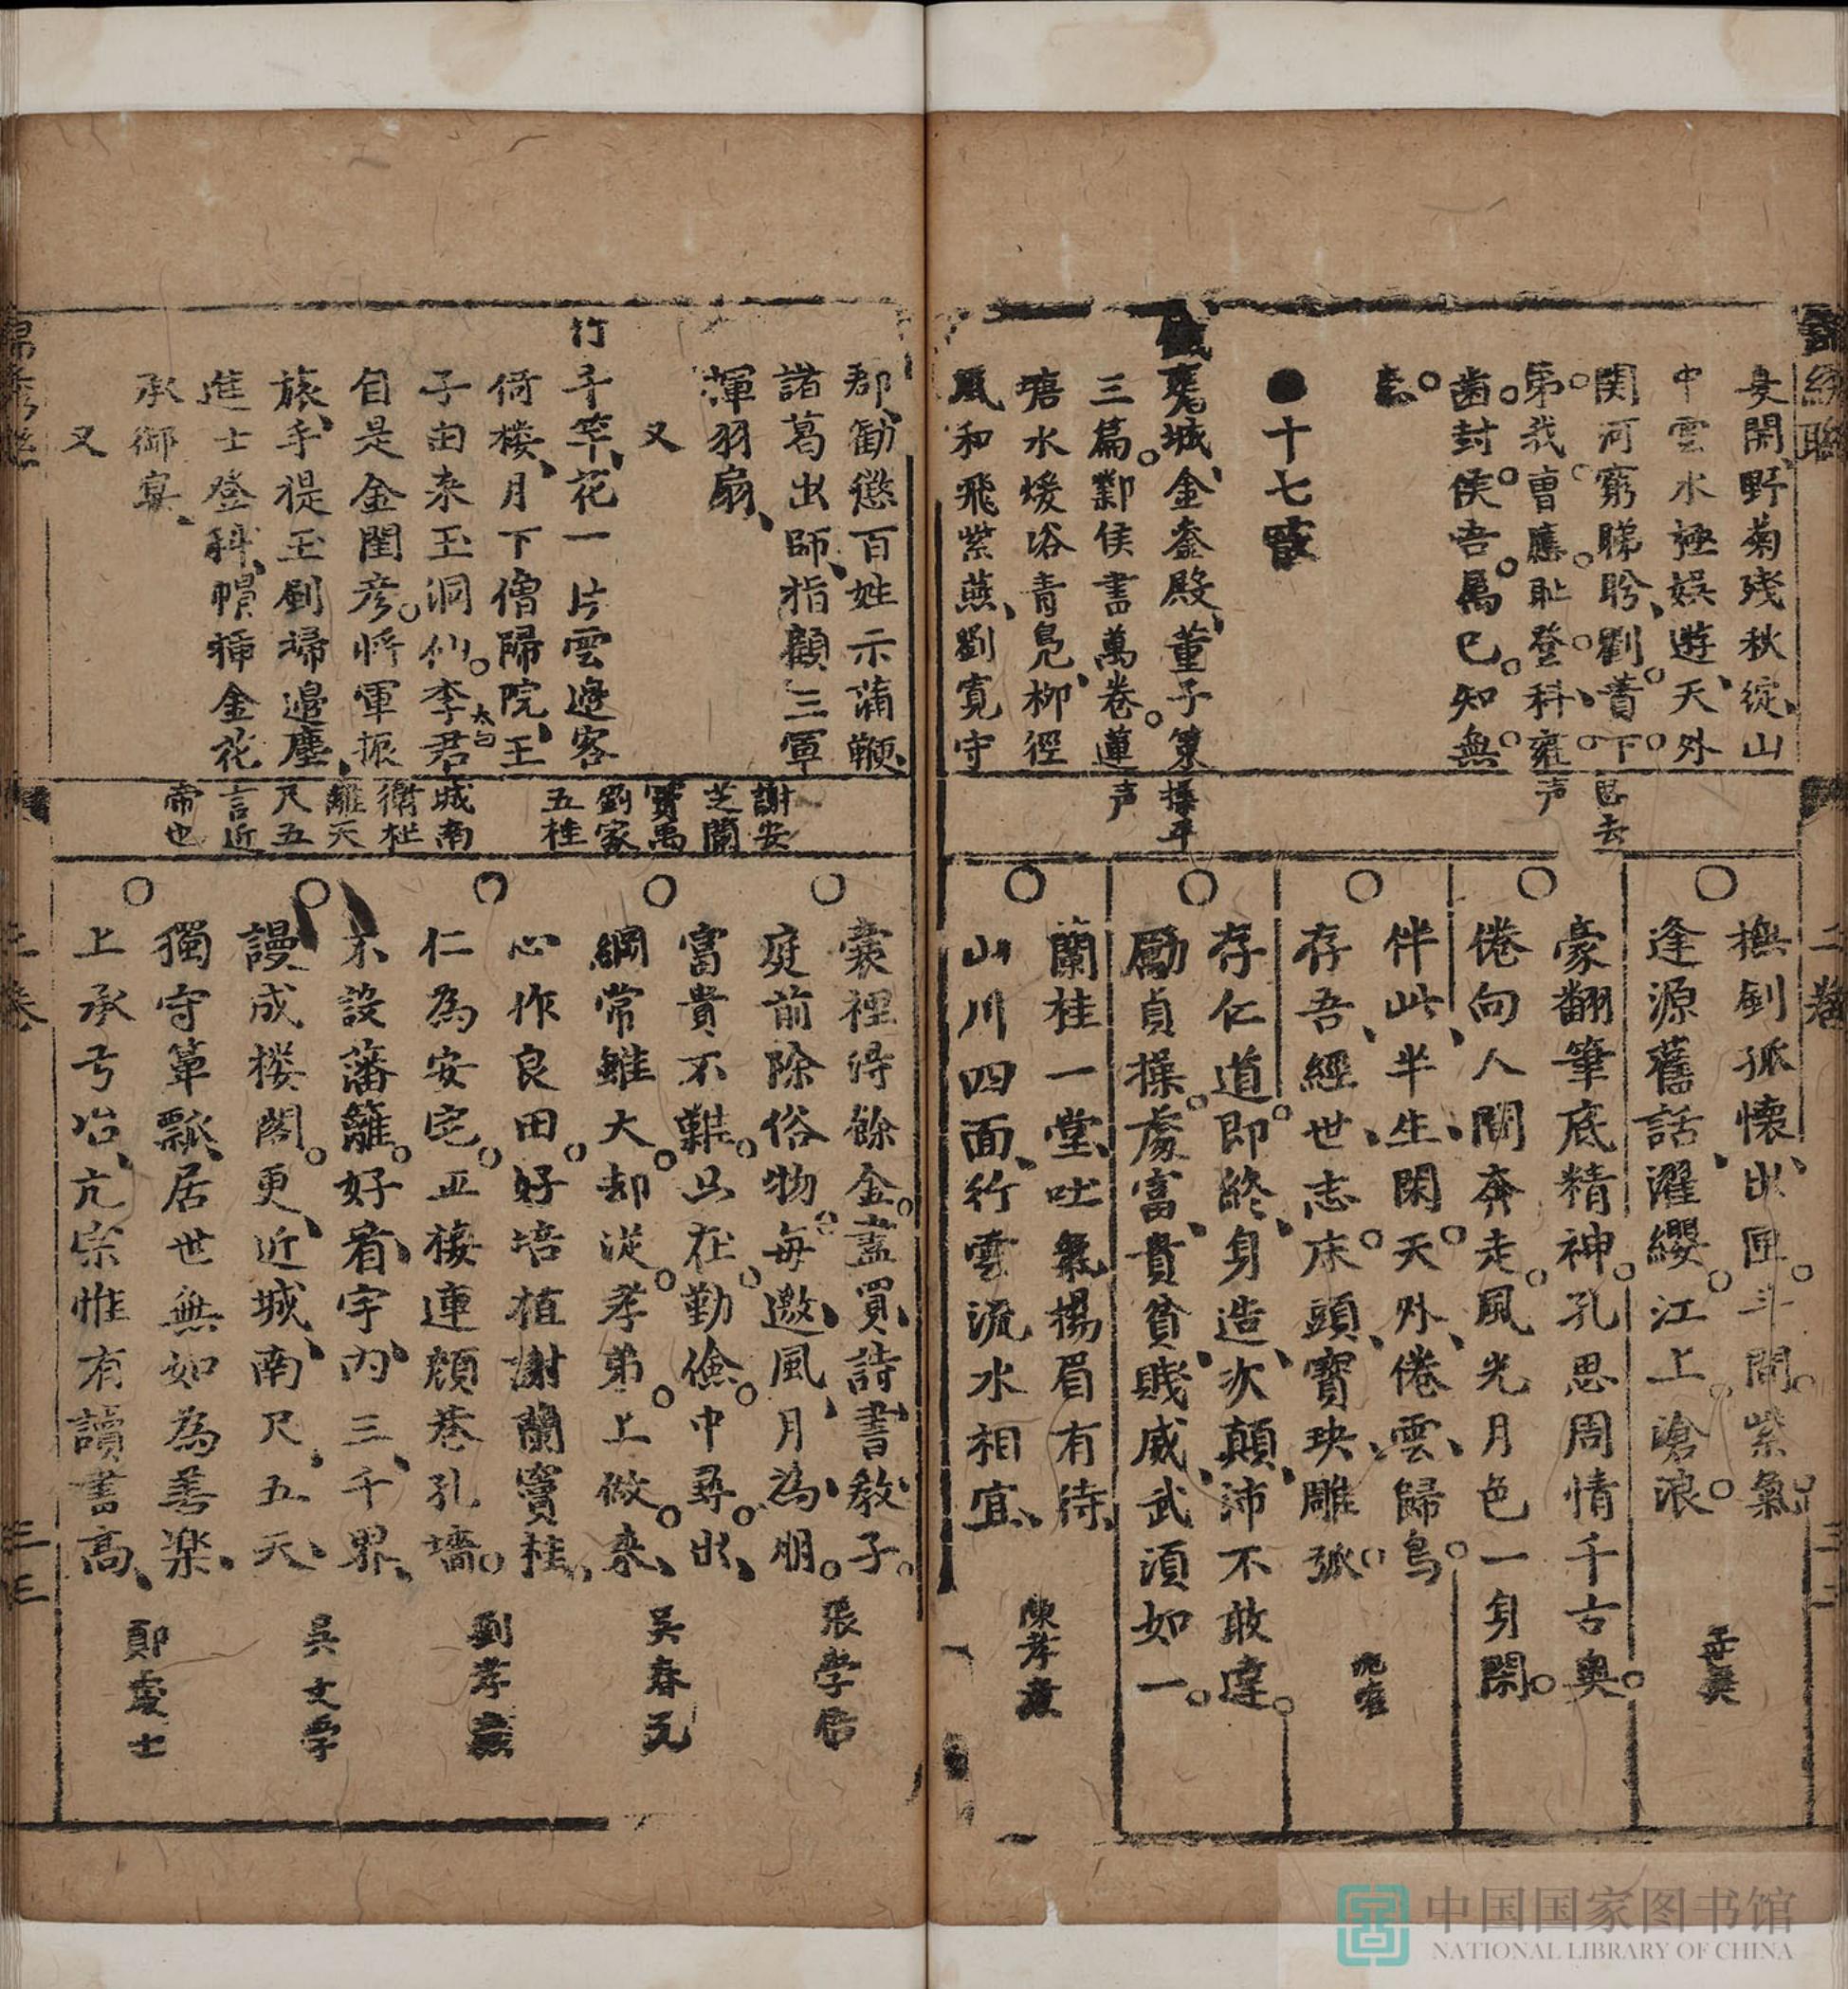 炎閑、野菊殘秋綻、山
中雲水極娛遊、天外
関河窮睇盼、劉蕡下
第我曹應恥登科、雍
齒封侯吾屬已知無
恙
●十七霰
魏城、金奎殿、董子策
三篇鄴侯書萬卷蓮
塘水煖浴青鳧、柳徑
風和飛紫燕、劉寬守
郡、勸懲百姓示蒲鞭、
諸葛出師、指顧三軍
揮羽扇、
又
竹千竿、花一片雲邊客
倚楼、月下僧歸院、王
子由来玉洞仙李君
太白
自是金閨彦將軍振
旅、手提玉劍掃邊塵、
進士登科、帽插金花
承御宴、
又
思去
声
操平
声
謝安
芝蘭
竇禹
劉家
五桂
城南
衞杜
離天
尺五
言近
帝也
二卷
撫劍孤懷出匣斗間紫氣
逢源舊話、濯纓江上滄浪
豪翻筆底精神孔思周情千古奥
倦向人間奔走風光月色一身閑
伴此、半生閑天外、倦雲歸鳥
存吾、經世志床頭、寶玦雕弧
存仁道即終身造次顛沛不敢違
勵貞操處富貴貧賤威武須如一
蘭桂一堂、吐氣揚眉有待、
山川四面、行雲流水相宜、
陳孝廉
囊裡得餘金盡買詩書教子
庭前除俗物每邀風月為朋
張学信
富貴不難只在勤儉中尋出、
綱常雖大却從孝弟上做来、
吴春元
心作良田好培植謝蘭竇桂
仁為安宅正接連顔巷孔墻
劉孝廉
不設藩籬好看宇内三千界、
謾成楼閣更近城南尺五天、
吴文学
獨守簞瓢、居世無如為善楽、
上承弓冶、亢宗惟有讀書高、
鄭處士
上卷